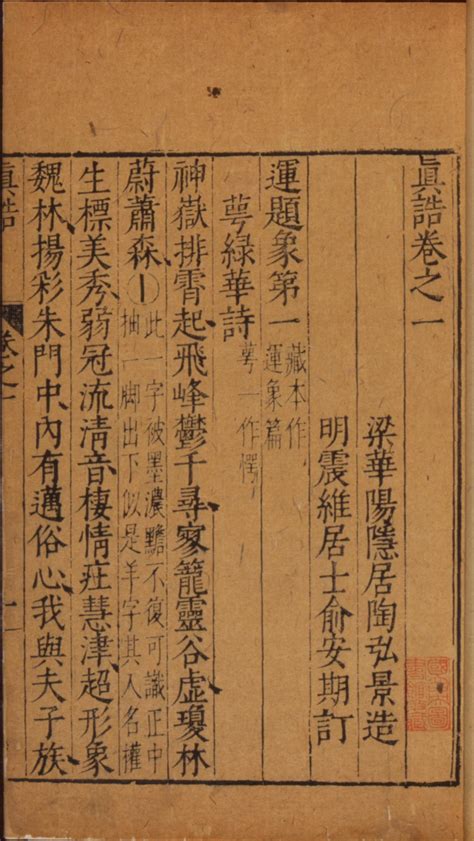 眞誥卷之一
梁華陽隱居陶弘景造
明震維居士俞安期訂
運題象第一
藏本作
運象篇
萼綠華詩
萼一作愕
神嶽排霄起飛峰鬱千尋寥籠靈谷虛瓊林
蔚蕭森
此一字被墨濃黵不復可識正中
抽一脚出下似是羊字其人名權
生標美秀弱冠流清音棲情莊慧津超形象
魏林揚彩朱門中內有邁俗心我與夫子族
眞誥
卷之一